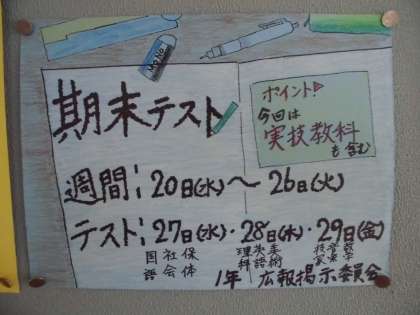 MONO
期末テスト
ポイント!
今回は
実技教科
も含む
週間:20日(水)~26日(火)
テスト:27日(水)・28日(木)・29日(金)
国語 社会 保体
理科 英語 美術
技家 音楽 数学
1年 広報掲示委員会